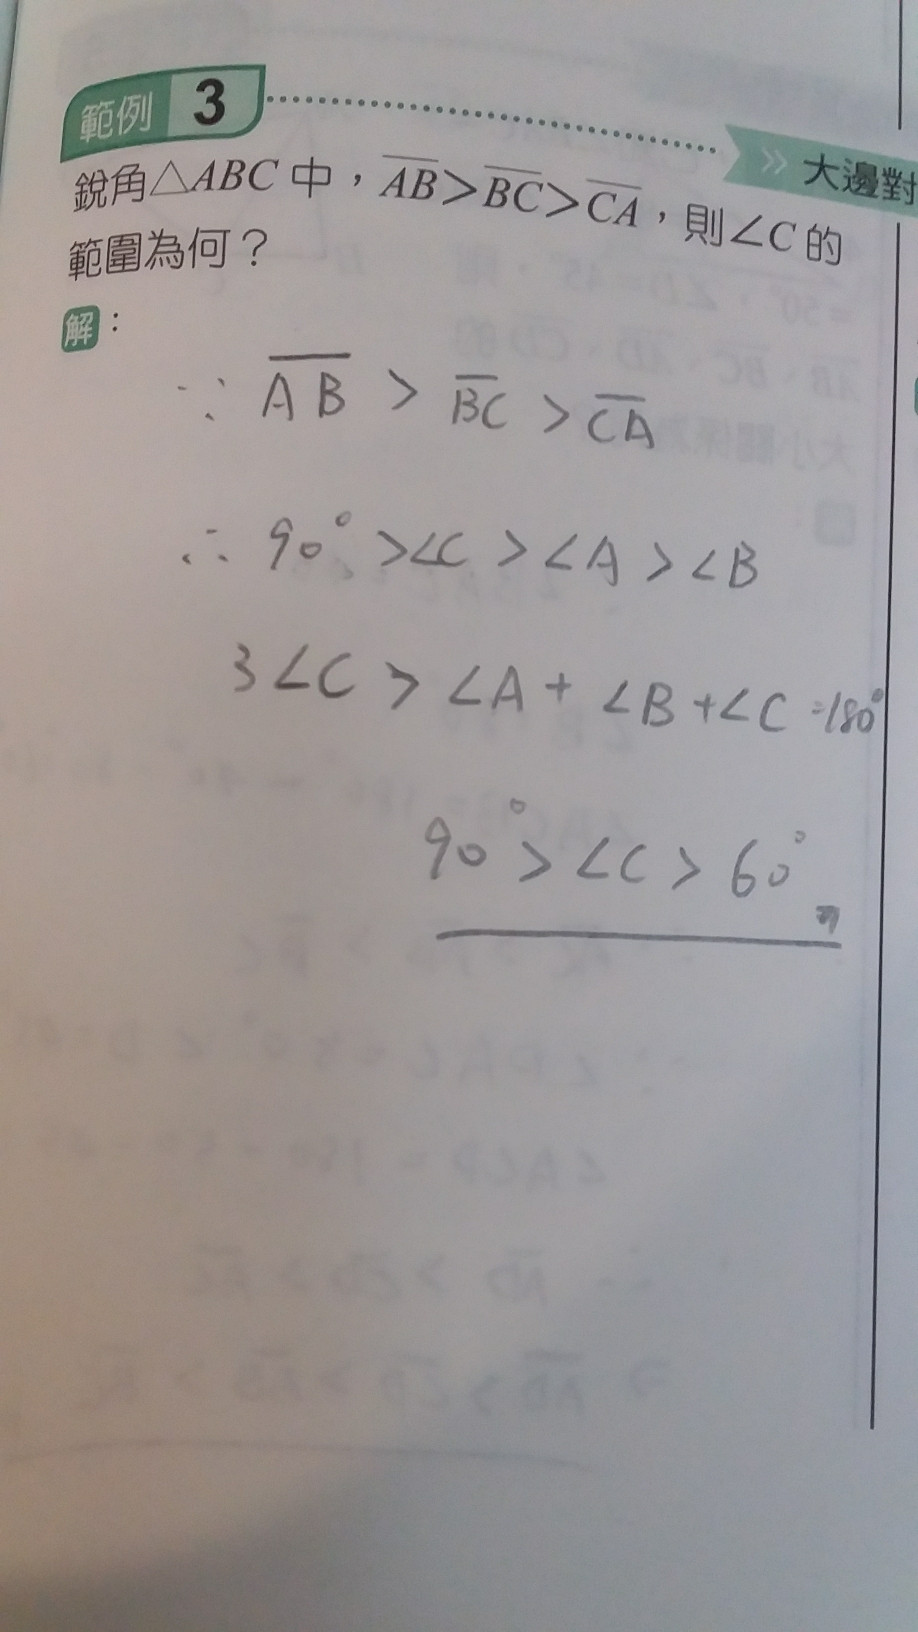 範例 3 》 大邊對
銳角△ABC 中，AB>BC>CA，則∠C 的
範圍為何？
解：
∵ AB > BC > CA
∴ 90° > ∠C > ∠A > ∠B
3∠C > ∠A + ∠B + ∠C = 180°
90° > ∠C > 60°